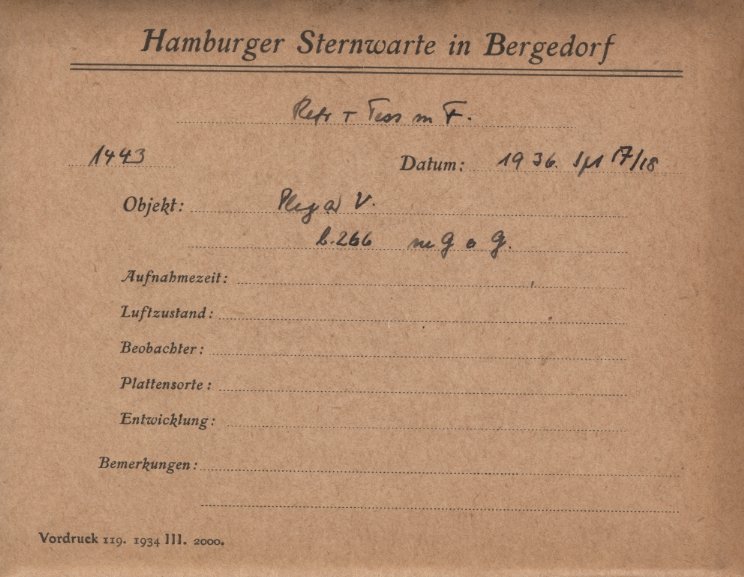 Hamburger Sternwarte in Bergedorf
Refr + Tess m F.
1443 Datum: 1936. Spt 17/18
Objekt: V.
b.266 m G o G.
Aufnahmezeit:
Luftzustand:
Beobachter:
Plattensorte:
Entwicklung:
Bemerkungen:
Vordruck 119. 1934 III. 2000.